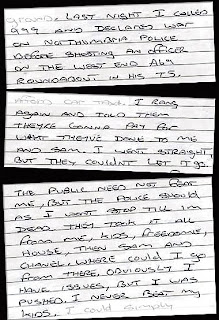 ground. LAST NIGHT I CALLED
999 AND DECLARED WAR
ON NORTHUMBRIA POLICE
BEFORE SHOOTING AN OFFICER
ON THE WEST END A69
ROUNDABOUT IN HIS T5.
I RANG
AGAIN AND TOLD THEM
THEY'RE GONNA PAY FOR
WHAT THEY'VE DONE TO ME
AND SAM. I WENT STRAIGHT
BUT THEY COULDNT LET IT GO.
THE PUBLIC NEED NOT FEAR
ME, BUT THE POLICE SHOULD
AS I WONT STOP TILL IM
DEAD THEY TOOK IT ALL
FROM ME, KIDS, FREEDOM,
HOUSE, THEN SAM AND
CHANEL. WHERE COULD I GO
FROM THERE. OBVIOUSLY I
HAVE ISSUES, BUT I WAS
PUSHED. I NEVER BEAT MY
KIDS. I could simply